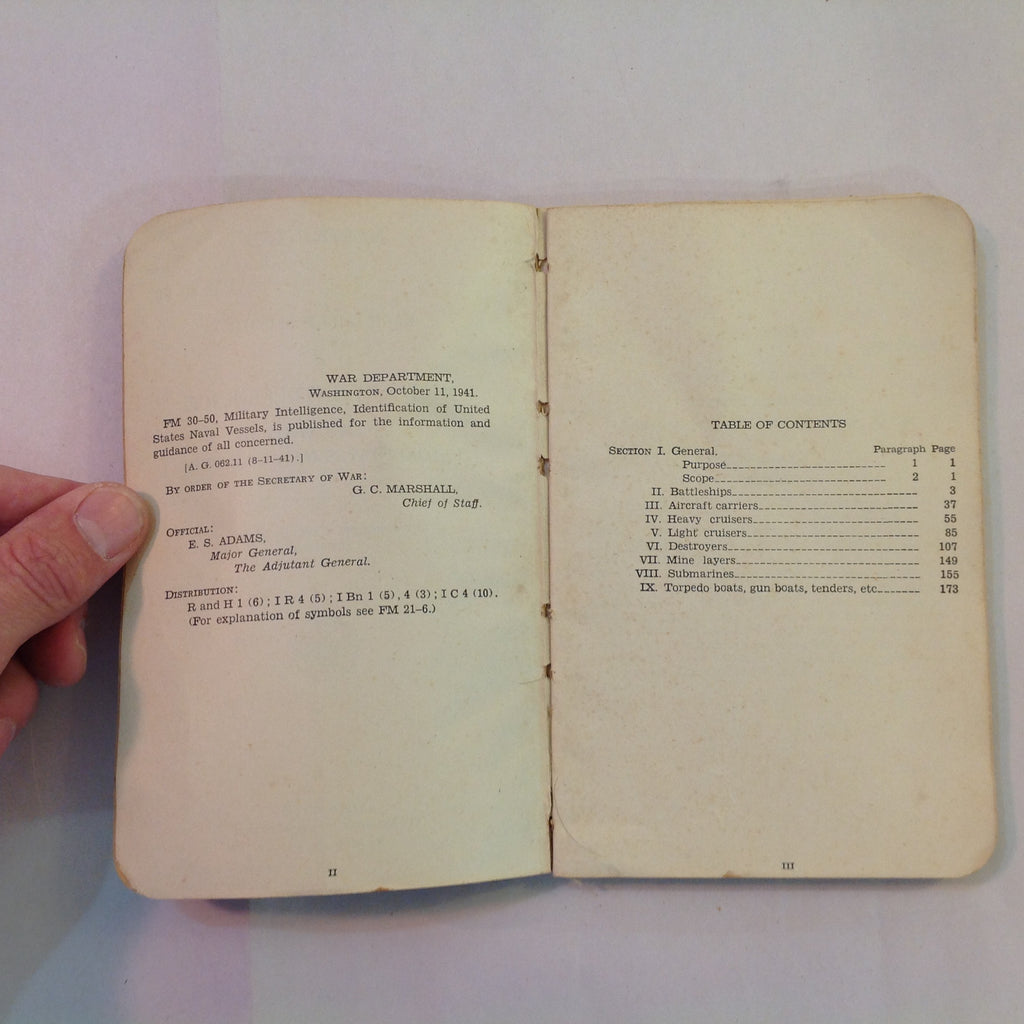 WAR DEPARTMENT,
WASHINGTON, October 11, 1941.
FM 30–50, Military Intelligence, Identification of United
States Naval Vessels, is published for the information and
guidance of all concerned.
[A. G. 062.11 (8–11–41).]
BY ORDER OF THE SECRETARY OF WAR:
G. C. MARSHALL,
Chief of Staff.
OFFICIAL:
E. S. ADAMS,
Major General,
The Adjutant General.
DISTRIBUTION:
R and H 1 (6); I R 4 (5); I Bn 1 (5), 4 (3); I C 4 (10).
(For explanation of symbols see FM 21–6.)
II
TABLE OF CONTENTS
SECTION I. General. Paragraph Page
Purpose 1 1
Scope 2 1
II. Battleships 3
III. Aircraft carriers 37
IV. Heavy cruisers 55
V. Light cruisers 85
VI. Destroyers 107
VII. Mine layers 149
VIII. Submarines 155
IX. Torpedo boats, gun boats, tenders, etc 173
III